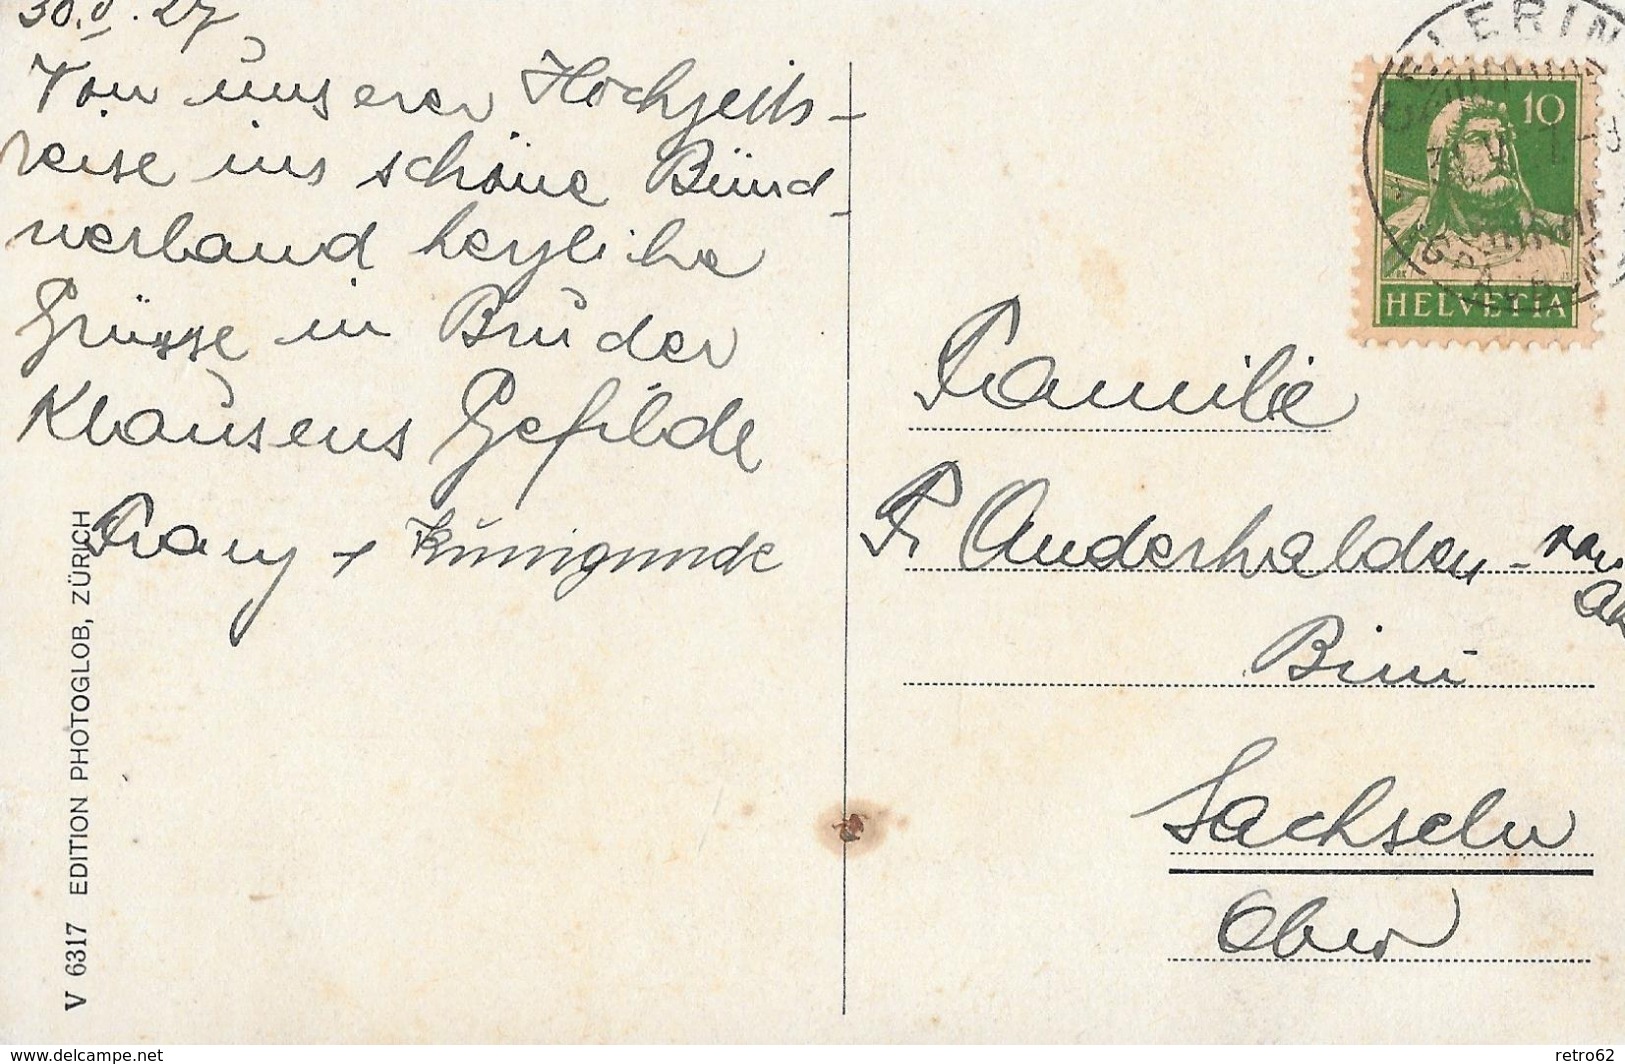 30. V. 27
Von unserer Hochzeits-
reise ins schöne Bünd-
nerland herzliche
Grüsse in Bruder
Klausens Gefilde
Franz + Kunigunde
V 6317 EDITION PHOTOGLOB, ZÜRICH
10
HELVETIA
Familie
Fr Anderhalden - von
Bini
Sachseln
Obw
www.delcampe.net
retro62